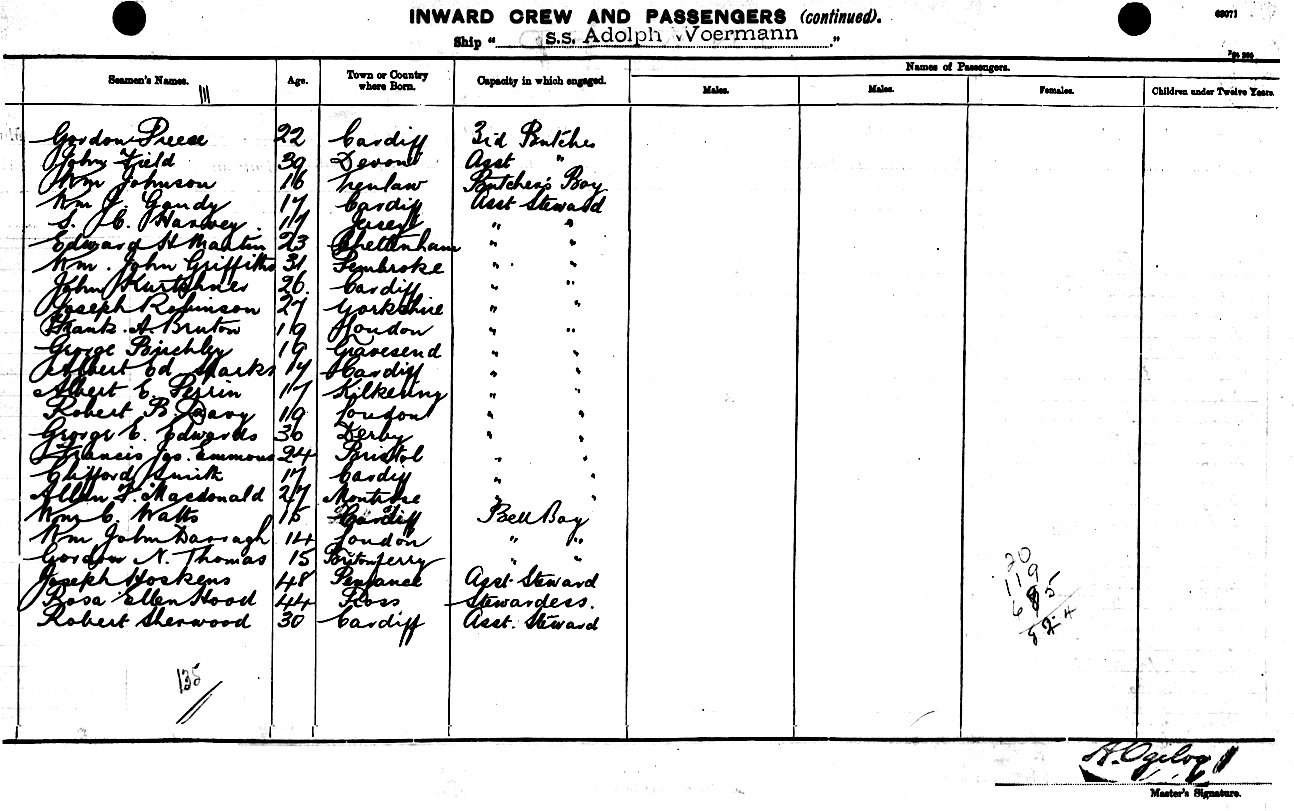 INWARD CREW AND PASSENGERS (continued).
65071
Ship " S.S. Adolph Woermann ."
Names of Passengers.
Seamen's Names. Age. Town or Country where Born. Capacity in which engaged. Males. Males. Females. Children under Twelve Years.
Gordon Preece 22 Cardiff 3rd Butcher
John Field 39 Devon Asst "
Wm Johnson 16 Butcher's Boy
Wm J. Gandy 17 Cardiff Asst Steward
S. C. Harvey 17 Jersey " "
Edward H Martin 23 Cheltenham " "
Wm. John Griffiths 31 Pembroke " "
John 26 Cardiff " "
Joseph Robinson 27 Yorkshire " "
Frank A. Bruton 19 London " "
George Birchley 19 Gravesend " "
Albert Ed Marks 17 Cardiff " "
Albert E. Perrin 17 Kilkenny " "
Robert B. Davy 19 London " "
George E. Edwards 36 Derby " "
Francis Jas. Emmons 24 Bristol " "
Clifford Smith 17 Cardiff " "
Allan F. Macdonald 27 Montrose " "
Wm C. Watts 15 Cardiff Bell Boy
Wm John Darragh 14 London " "
Gordon N. Thomas 15 Britonferry " "
Joseph Hoskens 48 Penzance Asst Steward
Rosa Ellen Hood 44 Ross Stewardess.
Robert Sherwood 30 Cardiff Asst. Steward
20
119
135
A. Ogilvy
Master's Signature.